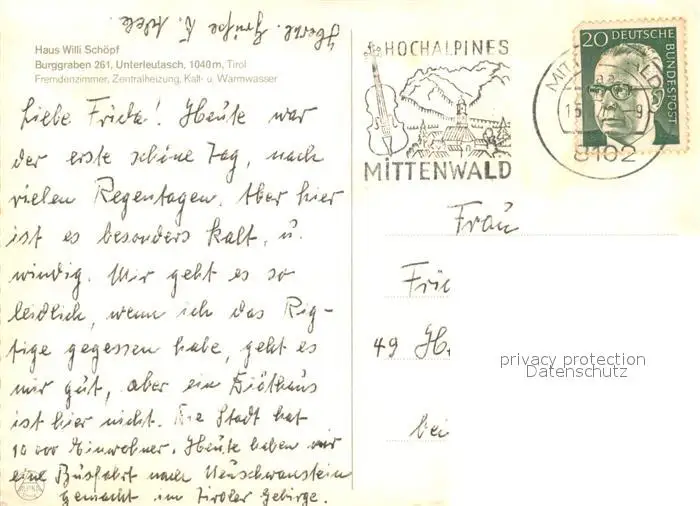 Herzl. Grüße
Haus Willi Schöpf
Burggraben 261, Unterleutasch, 1040m, Tirol
Fremdenzimmer, Zentralheizung, Kalt- u. Warmwasser
Liebe Frieda! Heute war
der erste schöne Tag, nach
vielen Regentagen. Aber hier
ist es besonders kalt, u.
windig. Mir geht es so
leidlich, wenn ich das Rig-
tige gegessen habe, geht es
mir gut, aber ein Diäthaus
ist hier nicht. Die Stadt hat
10 000 Einwohner. Heute haben wir
eine Busfahrt nach Neuschwanstein
gemacht im Tiroler Gebirge.
HOCHALPINES
MITTENWALD
20 DEUTSCHE
BUNDESPOST
8102
Frau
Frie
49 H
bei
privacy protection
Datenschutz